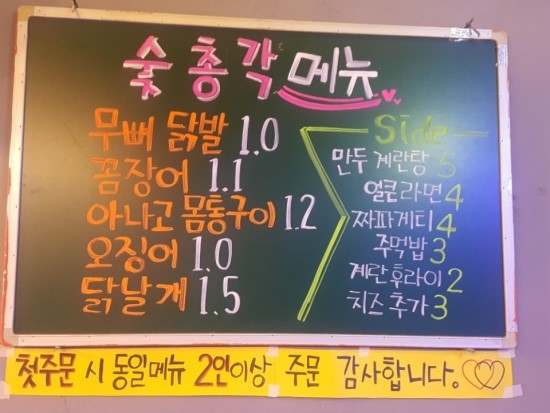 숯총각 메뉴
무뼈 닭발 1.0
꼼장어 1.1
아나고 몸통구이 1.2
오징어 1.0
닭날개 1.5
Side
만두 계란탕 5
얼큰라면 4
짜파게티 4
주먹밥 3
계란후라이 2
치즈 추가 3
첫주문 시 동일메뉴 2인이상 주문 감사합니다.